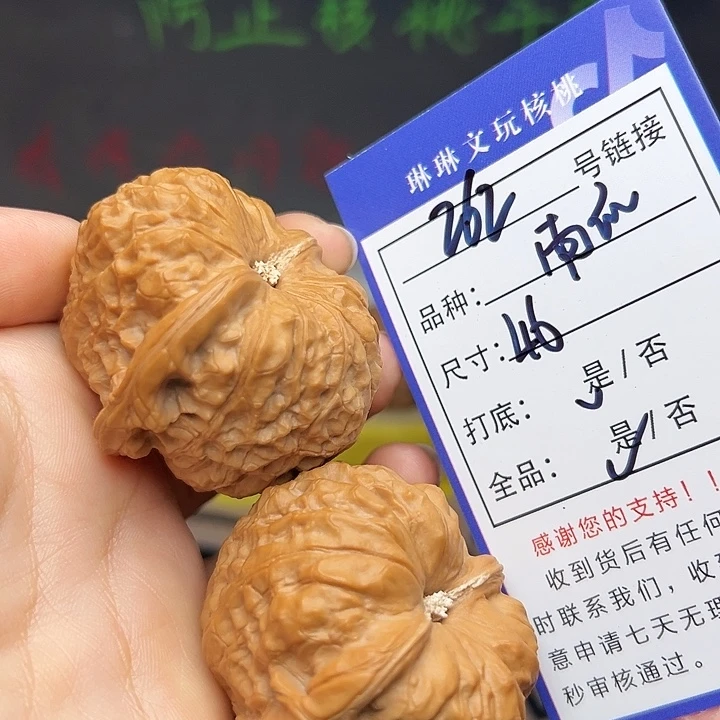 琳琳文玩核桃
262 号链接
品种：南瓜
尺寸：46
打底：是/否
全品：是/否
感谢您的支持！！
收到货后有任何
时联系我们，收
意申请七天无理
秒审核通过。